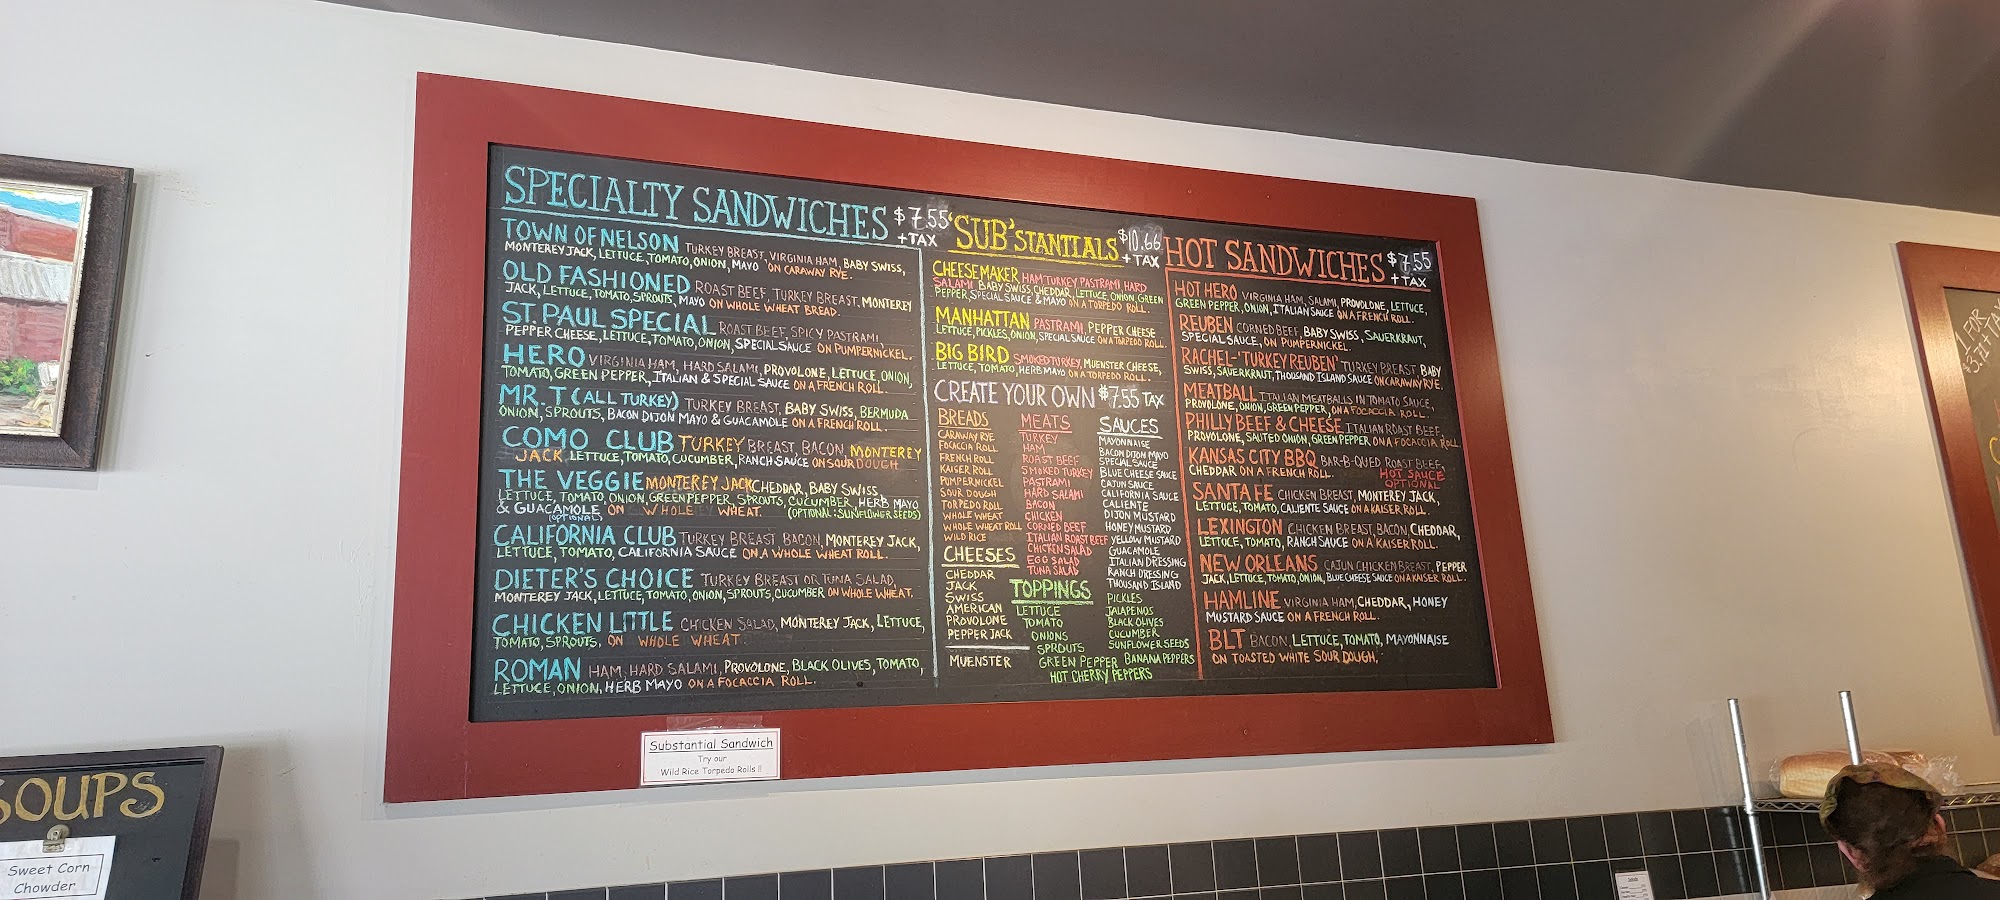 SPECIALTY SANDWICHES $7.55
+TAX
TOWN OF NELSON TURKEY BREAST, VIRGINIA HAM, BABY SWISS,
MONTEREY JACK, LETTUCE, TOMATO, ONION, MAYO ON CARAWAY RYE.
OLD FASHIONED ROAST BEEF, TURKEY BREAST, MONTEREY
JACK, LETTUCE, TOMATO, SPROUTS, MAYO ON WHOLE WHEAT BREAD.
ST. PAUL SPECIAL ROAST BEEF, SPICY PASTRAMI,
PEPPER CHEESE, LETTUCE, TOMATO, ONION, SPECIAL SAUCE ON PUMPERNICKEL.
HERO VIRGINIA HAM, HARD SALAMI, PROVOLONE, LETTUCE, ONION,
TOMATO, GREEN PEPPER, ITALIAN & SPECIAL SAUCE ON A FRENCH ROLL.
MR. T (ALL TURKEY) TURKEY BREAST, BABY SWISS, BERMUDA
ONION, SPROUTS, BACON DIJON MAYO & GUACAMOLE ON A FRENCH ROLL.
COMO CLUB TURKEY BREAST, BACON, MONTEREY
JACK, LETTUCE, TOMATO, CUCUMBER, RANCH SAUCE ON SOUR DOUGH
THE VEGGIE MONTEREY JACK CHEDDAR, BABY SWISS,
LETTUCE, TOMATO, ONION, GREEN PEPPER, SPROUTS, CUCUMBER, HERB MAYO
& GUACAMOLE ON WHOLE WHEAT. (OPTIONAL: SUNFLOWER SEEDS)
(OPTIONAL)
CALIFORNIA CLUB TURKEY BREAST, BACON, MONTEREY JACK,
LETTUCE, TOMATO, CALIFORNIA SAUCE ON A WHOLE WHEAT ROLL.
DIETER'S CHOICE TURKEY BREAST OR TUNA SALAD,
MONTEREY JACK, LETTUCE, TOMATO, ONION, SPROUTS, CUCUMBER ON WHOLE WHEAT.
CHICKEN LITTLE CHICKEN SALAD, MONTEREY JACK, LETTUCE,
TOMATO, SPROUTS, ON WHOLE WHEAT
ROMAN HAM, HARD SALAMI, PROVOLONE, BLACK OLIVES, TOMATO,
LETTUCE, ONION, HERB MAYO ON A FOCACCIA ROLL.
'SUB'STANTIALS $10.66
+TAX
CHEESEMAKER HAM TURKEY PASTRAMI, HARD
SALAMI, BABY SWISS, CHEDDAR, LETTUCE, ONION, GREEN
PEPPER, SPECIAL SAUCE & MAYO ON A TORPEDO ROLL.
MANHATTAN PASTRAMI, PEPPER CHEESE
LETTUCE, PICKLES, ONION, SPECIAL SAUCE ON A TORPEDO ROLL.
BIG BIRD SMOKED TURKEY, MUENSTER CHEESE,
LETTUCE, TOMATO, HERB MAYO ON A TORPEDO ROLL.
CREATE YOUR OWN $7.55 TAX
BREADS
CARAWAY RYE
FOCACCIA ROLL
FRENCH ROLL
KAISER ROLL
PUMPERNICKEL
SOUR DOUGH
TORPEDO ROLL
WHOLE WHEAT
WHOLE WHEAT ROLL
WILD RICE
CHEESES
CHEDDAR
JACK
SWISS
AMERICAN
PROVOLONE
PEPPER JACK
MUENSTER
MEATS
TURKEY
HAM
ROAST BEEF
SMOKED TURKEY
PASTRAMI
HARD SALAMI
BACON
CHICKEN
CORNED BEEF
ITALIAN ROAST BEEF
CHICKEN SALAD
EGG SALAD
TUNA SALAD
SAUCES
MAYONNAISE
BACON DIJON MAYO
SPECIAL SAUCE
BLUE CHEESE SAUCE
CAJUN SAUCE
CALIFORNIA SAUCE
CALIENTE
DIJON MUSTARD
HONEY MUSTARD
YELLOW MUSTARD
GUACAMOLE
ITALIAN DRESSING
RANCH DRESSING
THOUSAND ISLAND
TOPPINGS
LETTUCE
TOMATO
ONIONS
SPROUTS
GREEN PEPPER
PICKLES
JALAPENOS
BLACK OLIVES
CUCUMBER
SUNFLOWER SEEDS
BANANA PEPPERS
HOT CHERRY PEPPERS
HOT SANDWICHES $7.55
+ TAX
HOT HERO VIRGINIA HAM, SALAMI, PROVOLONE, LETTUCE,
GREEN PEPPER, ONION, ITALIAN SAUCE ON A FRENCH ROLL.
REUBEN CORNED BEEF, BABY SWISS, SAUERKRAUT,
SPECIAL SAUCE, ON PUMPERNICKEL.
RACHEL-'TURKEY REUBEN' TURKEY BREAST, BABY
SWISS, SAUERKRAUT, THOUSAND ISLAND SAUCE ON CARAWAY RYE.
MEATBALL ITALIAN MEATBALLS IN TOMATO SAUCE,
PROVOLONE, ONION, GREEN PEPPER, ON A FOCACCIA ROLL.
PHILLY BEEF & CHEESE ITALIAN ROAST BEEF,
PROVOLONE, SAUTED ONION, GREEN PEPPER ON A FOCACCIA ROLL
KANSAS CITY BBQ BAR-B-QUED ROAST BEEF,
CHEDDAR ON A FRENCH ROLL. HOT SAUCE
OPTIONAL
SANTA FE CHICKEN BREAST, MONTEREY JACK,
LETTUCE, TOMATO, CALIENTE SAUCE ON A KAISER ROLL.
LEXINGTON CHICKEN BREAST, BACON, CHEDDAR,
LETTUCE, TOMATO, RANCH SAUCE ON A KAISER ROLL.
NEW ORLEANS CAJUN CHICKEN BREAST, PEPPER
JACK, LETTUCE, TOMATO, ONION, BLUE CHEESE SAUCE ON A KAISER ROLL.
HAMLINE VIRGINIA HAM, CHEDDAR, HONEY
MUSTARD SAUCE ON A FRENCH ROLL.
BLT BACON, LETTUCE, TOMATO, MAYONNAISE
ON TOASTED WHITE SOUR DOUGH,
Substantial Sandwich
Try our
Wild Rice Torpedo Rolls !!
SOUPS
Sweet Corn
Chowder
1 FOR
$3.21 + TAX